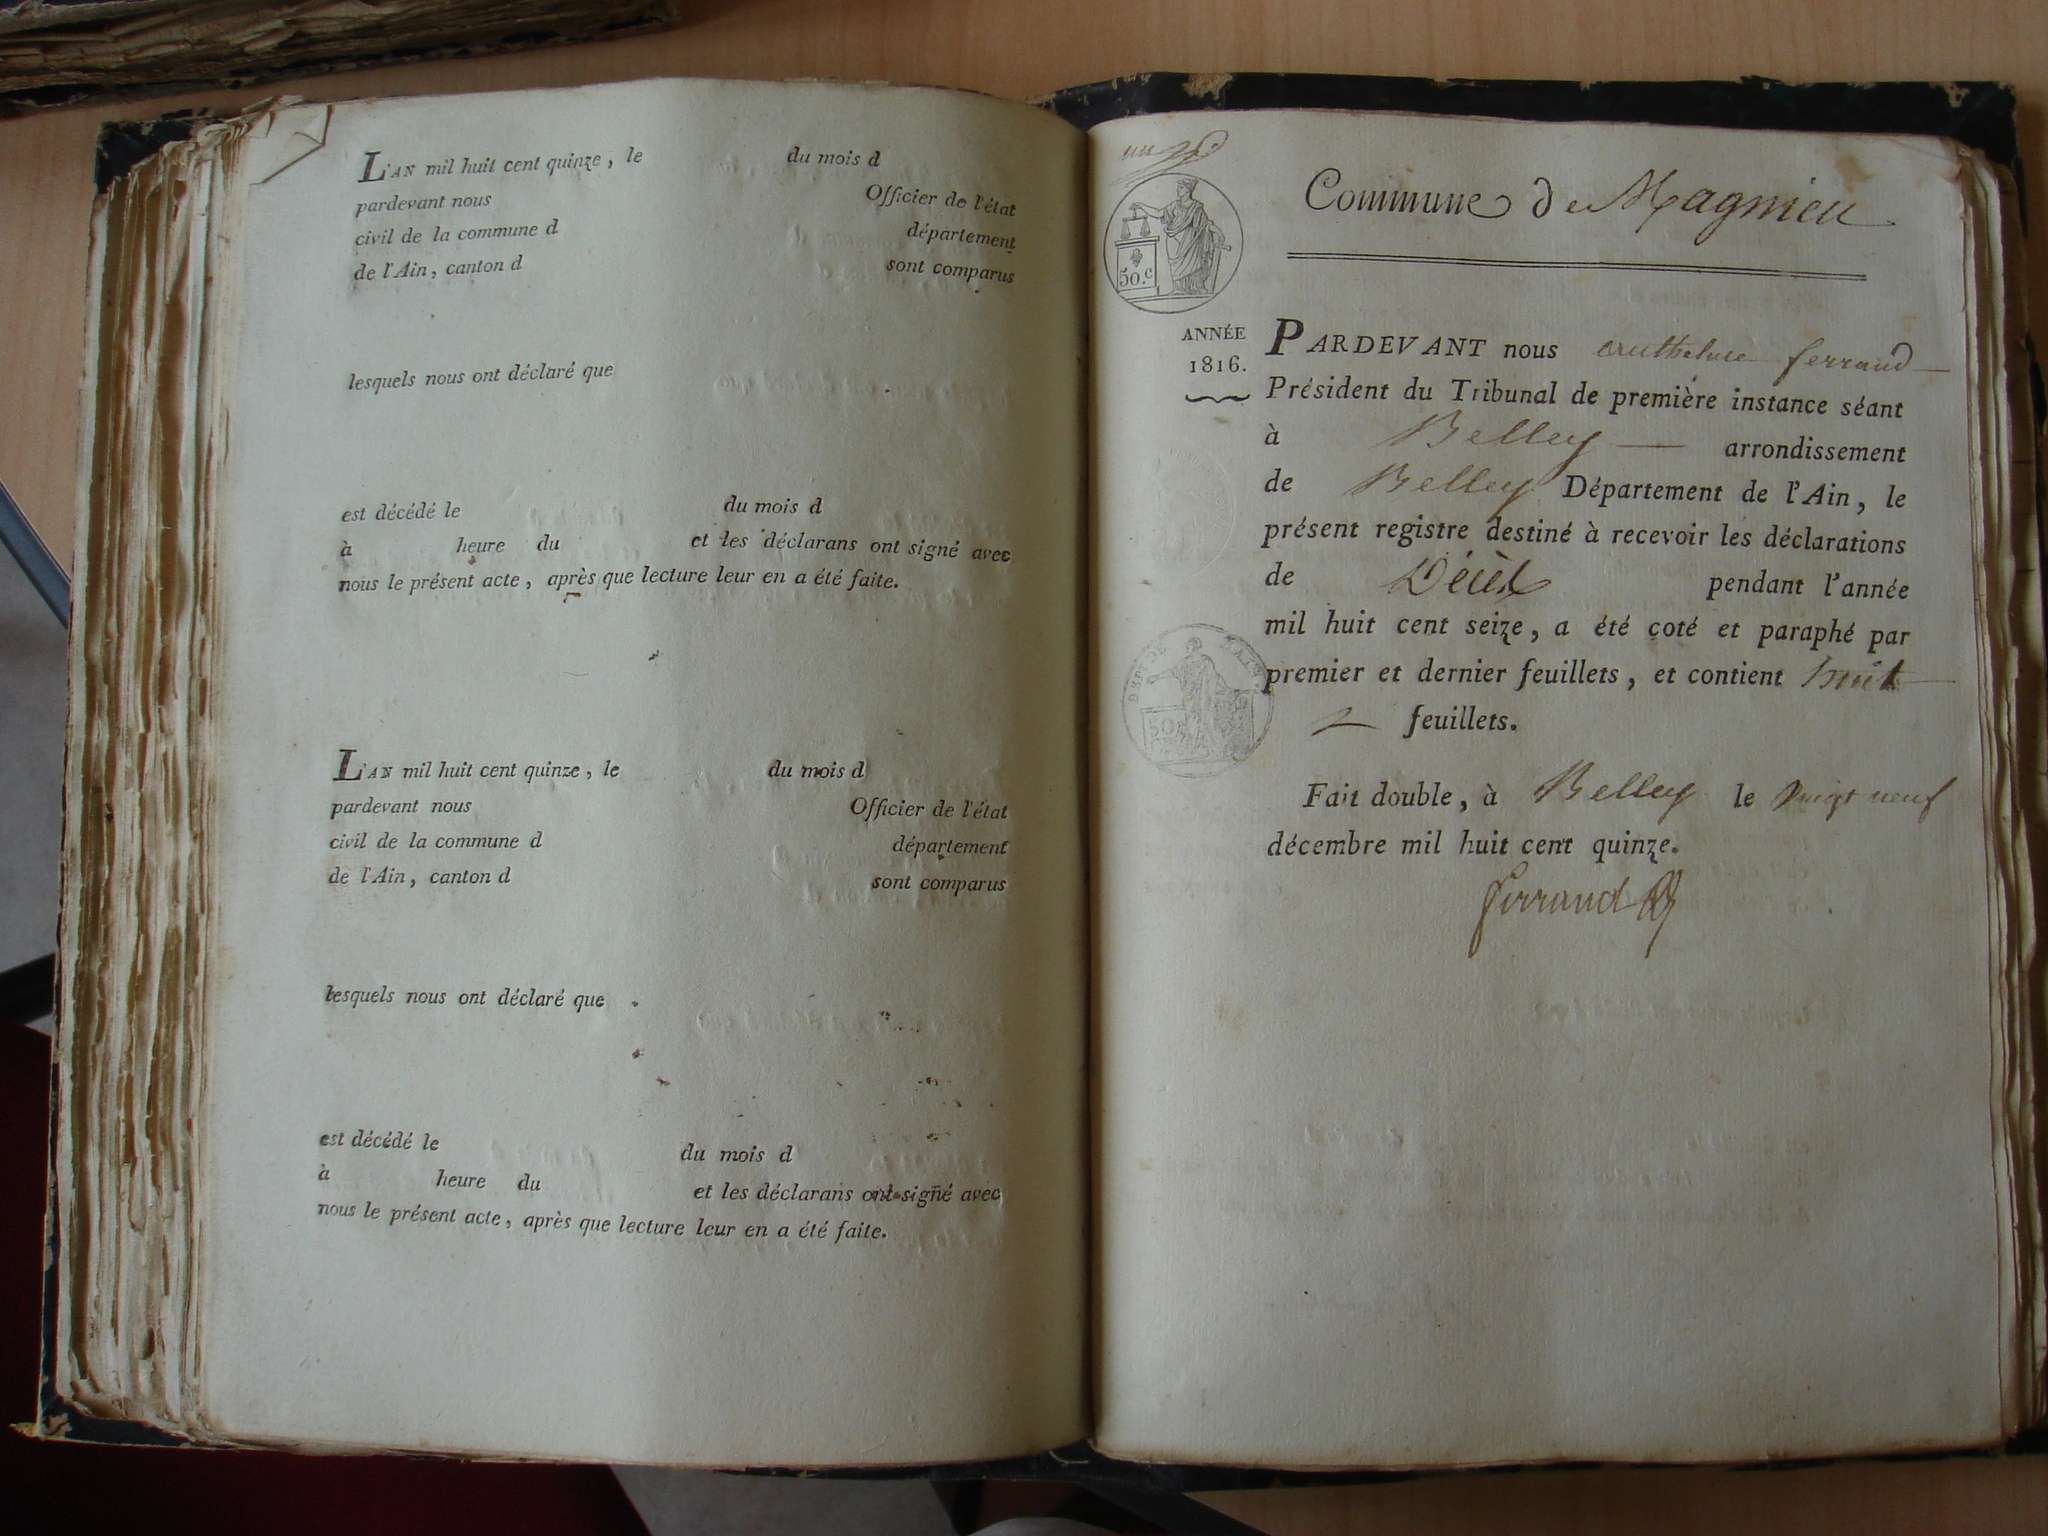 L'AN mil huit cent quinze, le du mois d
pardevant nous Officier de l'état
civil de la commune d département
de l'Ain, canton d sont comparus
lesquels nous ont déclaré que
est décédé le du mois d
à heure du et les déclarans ont signé avec
nous le présent acte, après que lecture leur en a été faite.
L'AN mil huit cent quinze, le du mois d
pardevant nous Officier de l'état
civil de la commune d département
de l'Ain, canton d sont comparus
lesquels nous ont déclaré que
est décédé le du mois d
à heure du et les déclarans ont signé avec
nous le présent acte, après que lecture leur en a été faite.
50.c
Commune de Magnieu
ANNÉE
1816.
PARDEVANT nous ferrand
Président du Tribunal de première instance séant
à Belley arrondissement
de Belley Département de l'Ain, le
présent registre destiné à recevoir les déclarations
de Décès pendant l'année
mil huit cent seize, a été coté et paraphé par
premier et dernier feuillets, et contient huit
feuillets.
Fait double, à Belley le vingt neuf
décembre mil huit cent quinze.
ferrand